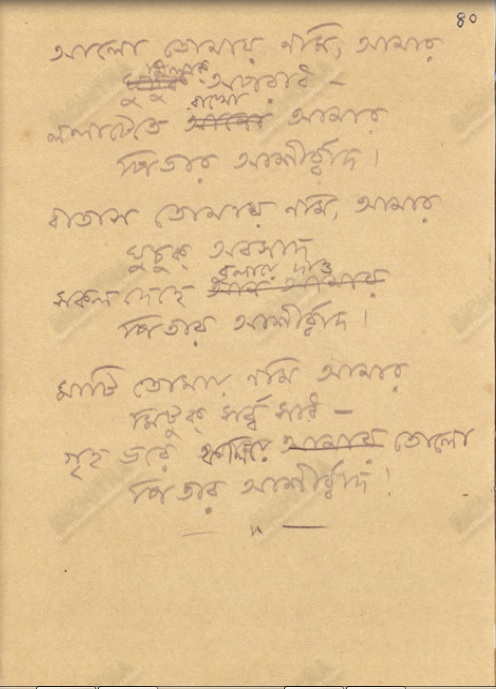 ৪০
আলো তোমায় নমি, আমার
মিলাক্ অপরাধ –
ললাটেতে রাখো আমার
পিতার আশীর্ব্বাদ।
বাতাস তোমায় নমি, আমার
ঘুচুক্ অবসাদ
সকল দেহে বুলায়ে দাও
পিতার আশীর্ব্বাদ।
মাটি তোমায় নমি আমার
মিটুক্ সর্ব্ব সাধ –
গৃহ ভরে ফলিয়ে তোলো
পিতার আশীর্ব্বাদ।